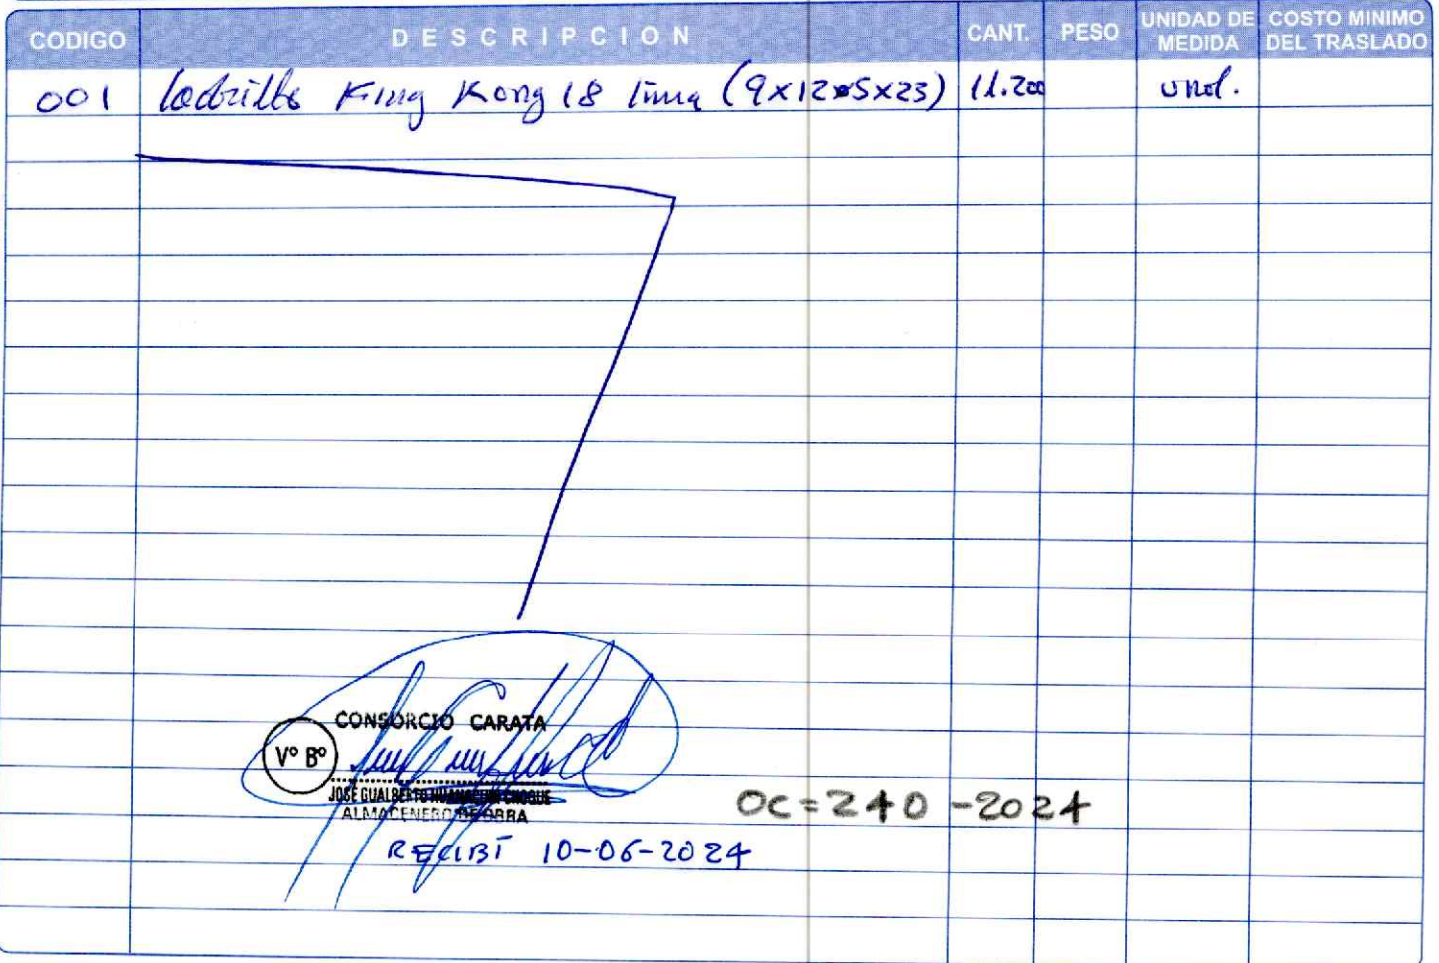 CODIGO DESCRIPCION CANT. PESO UNIDAD DE MEDIDA COSTO MINIMO DEL TRASLADO
001 ladrillo King Kong 18 lima (9x12x5x23) 11.200 und.
CONSORCIO CARATA
Vº Bº
JOSE GUALBERTO CHOQUE
ALMACENERO DE OBRA
OC=240-2024
RECIBI 10-06-2024